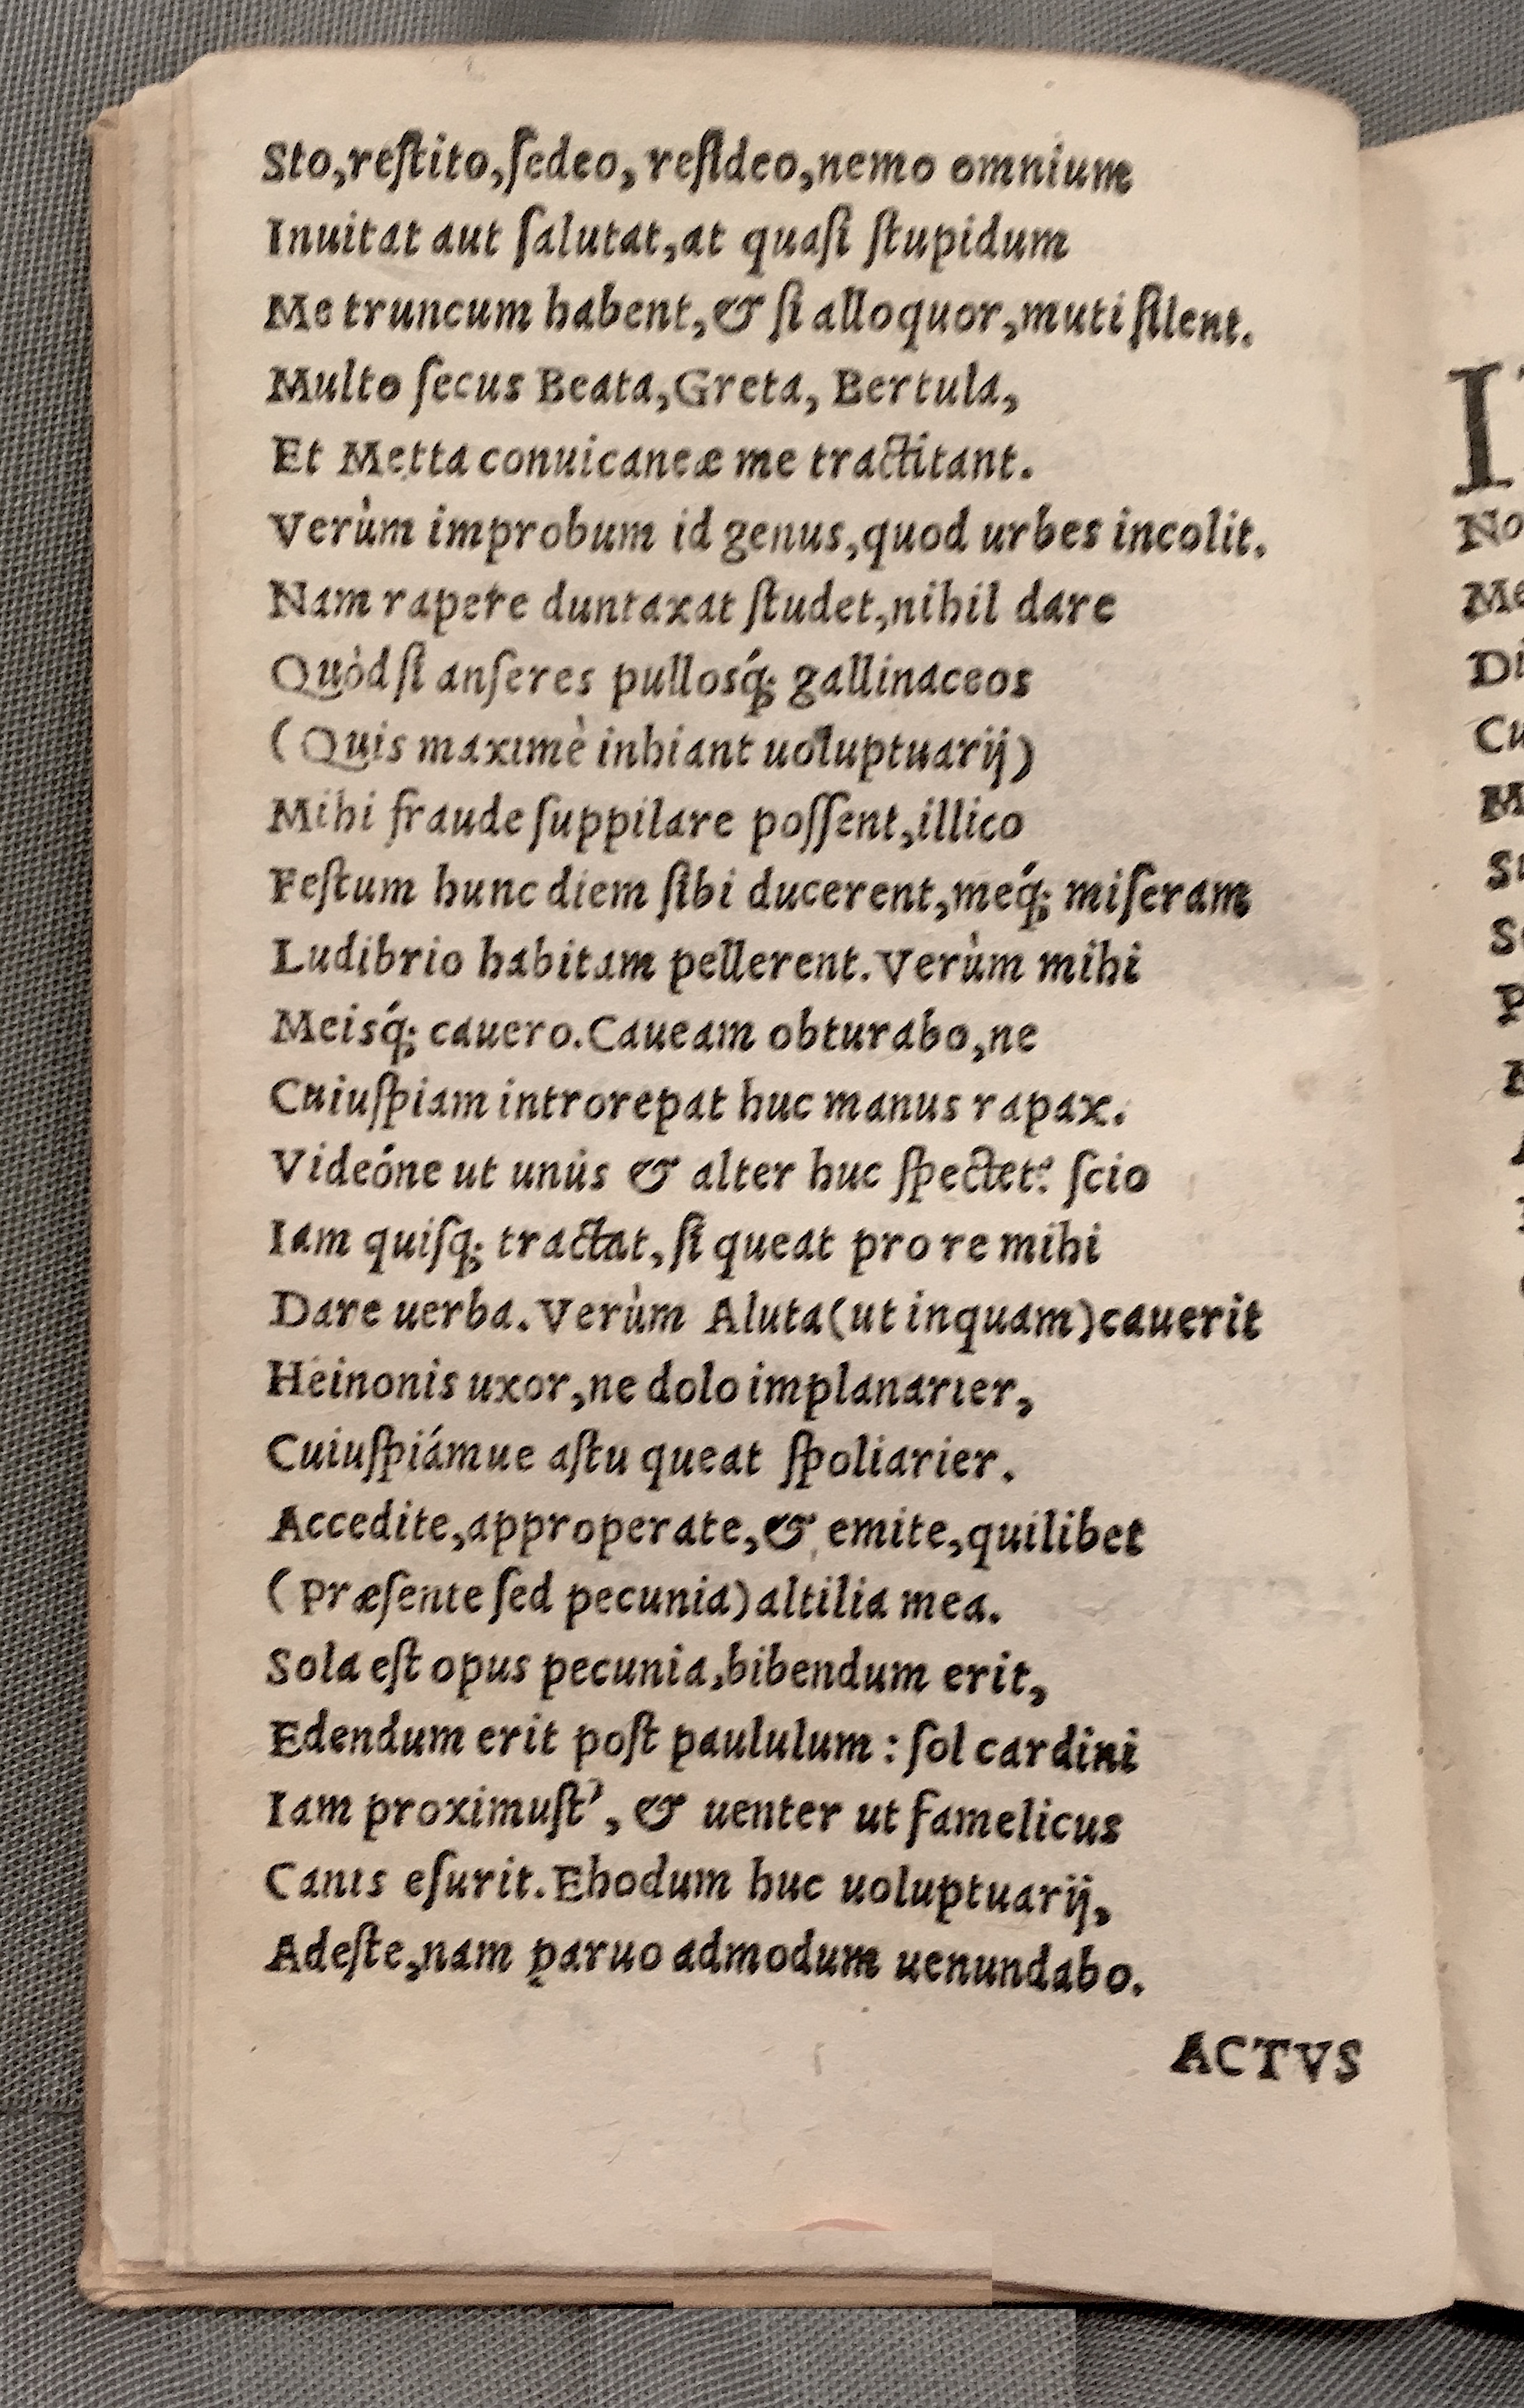 Sto,reſtito,ſedeo, reſideo,nemo omnium
Inuitat aut ſalutat,at quaſi ſtupidum
Me truncum habent,& ſi alloquor,muti ſilent.
Multo ſecus Beata,Greta, Bertula,
Et Metta conuicaneæ me tractitant.
Verùm improbum id genus,quod urbes incolit.
Nam rapere duntaxat ſtudet,nihil dare
Quòd ſi anſeres pullosq́; gallinaceos
(Quis maximè inhiant uoluptuarij)
Mihi fraude ſuppilare poſſent,illico
Feſtum hunc diem ſibi ducerent,meq́; miſeram
Ludibrio habitam pellerent.Verùm mihi
Meisq́; cauero.Caueam obturabo,ne
Cuiuſpiam introrepat huc manus rapax.
Videóne ut unus & alter huc ſpectet? ſcio
Iam quiſq; tractat,ſi queat pro re mihi
Dare uerba.Verùm Aluta(ut inquam)cauerit
Heinonis uxor,ne dolo implanarier,
Cuiuſpiámue aſtu queat ſpoliarier.
Accedite,approperate,& emite,quilibet
(Præſente ſed pecunia)altilia mea.
Sola eſt opus pecunia,bibendum erit,
Edendum erit poſt paululum : ſol cardini
Iam proximuſt’, & uenter ut famelicus
Canis eſurit.Ehodum huc uoluptuarij,
Adeſte,nam paruo admodum uenundabo.
ACTVS
I
No
Me
Di
Cu
M